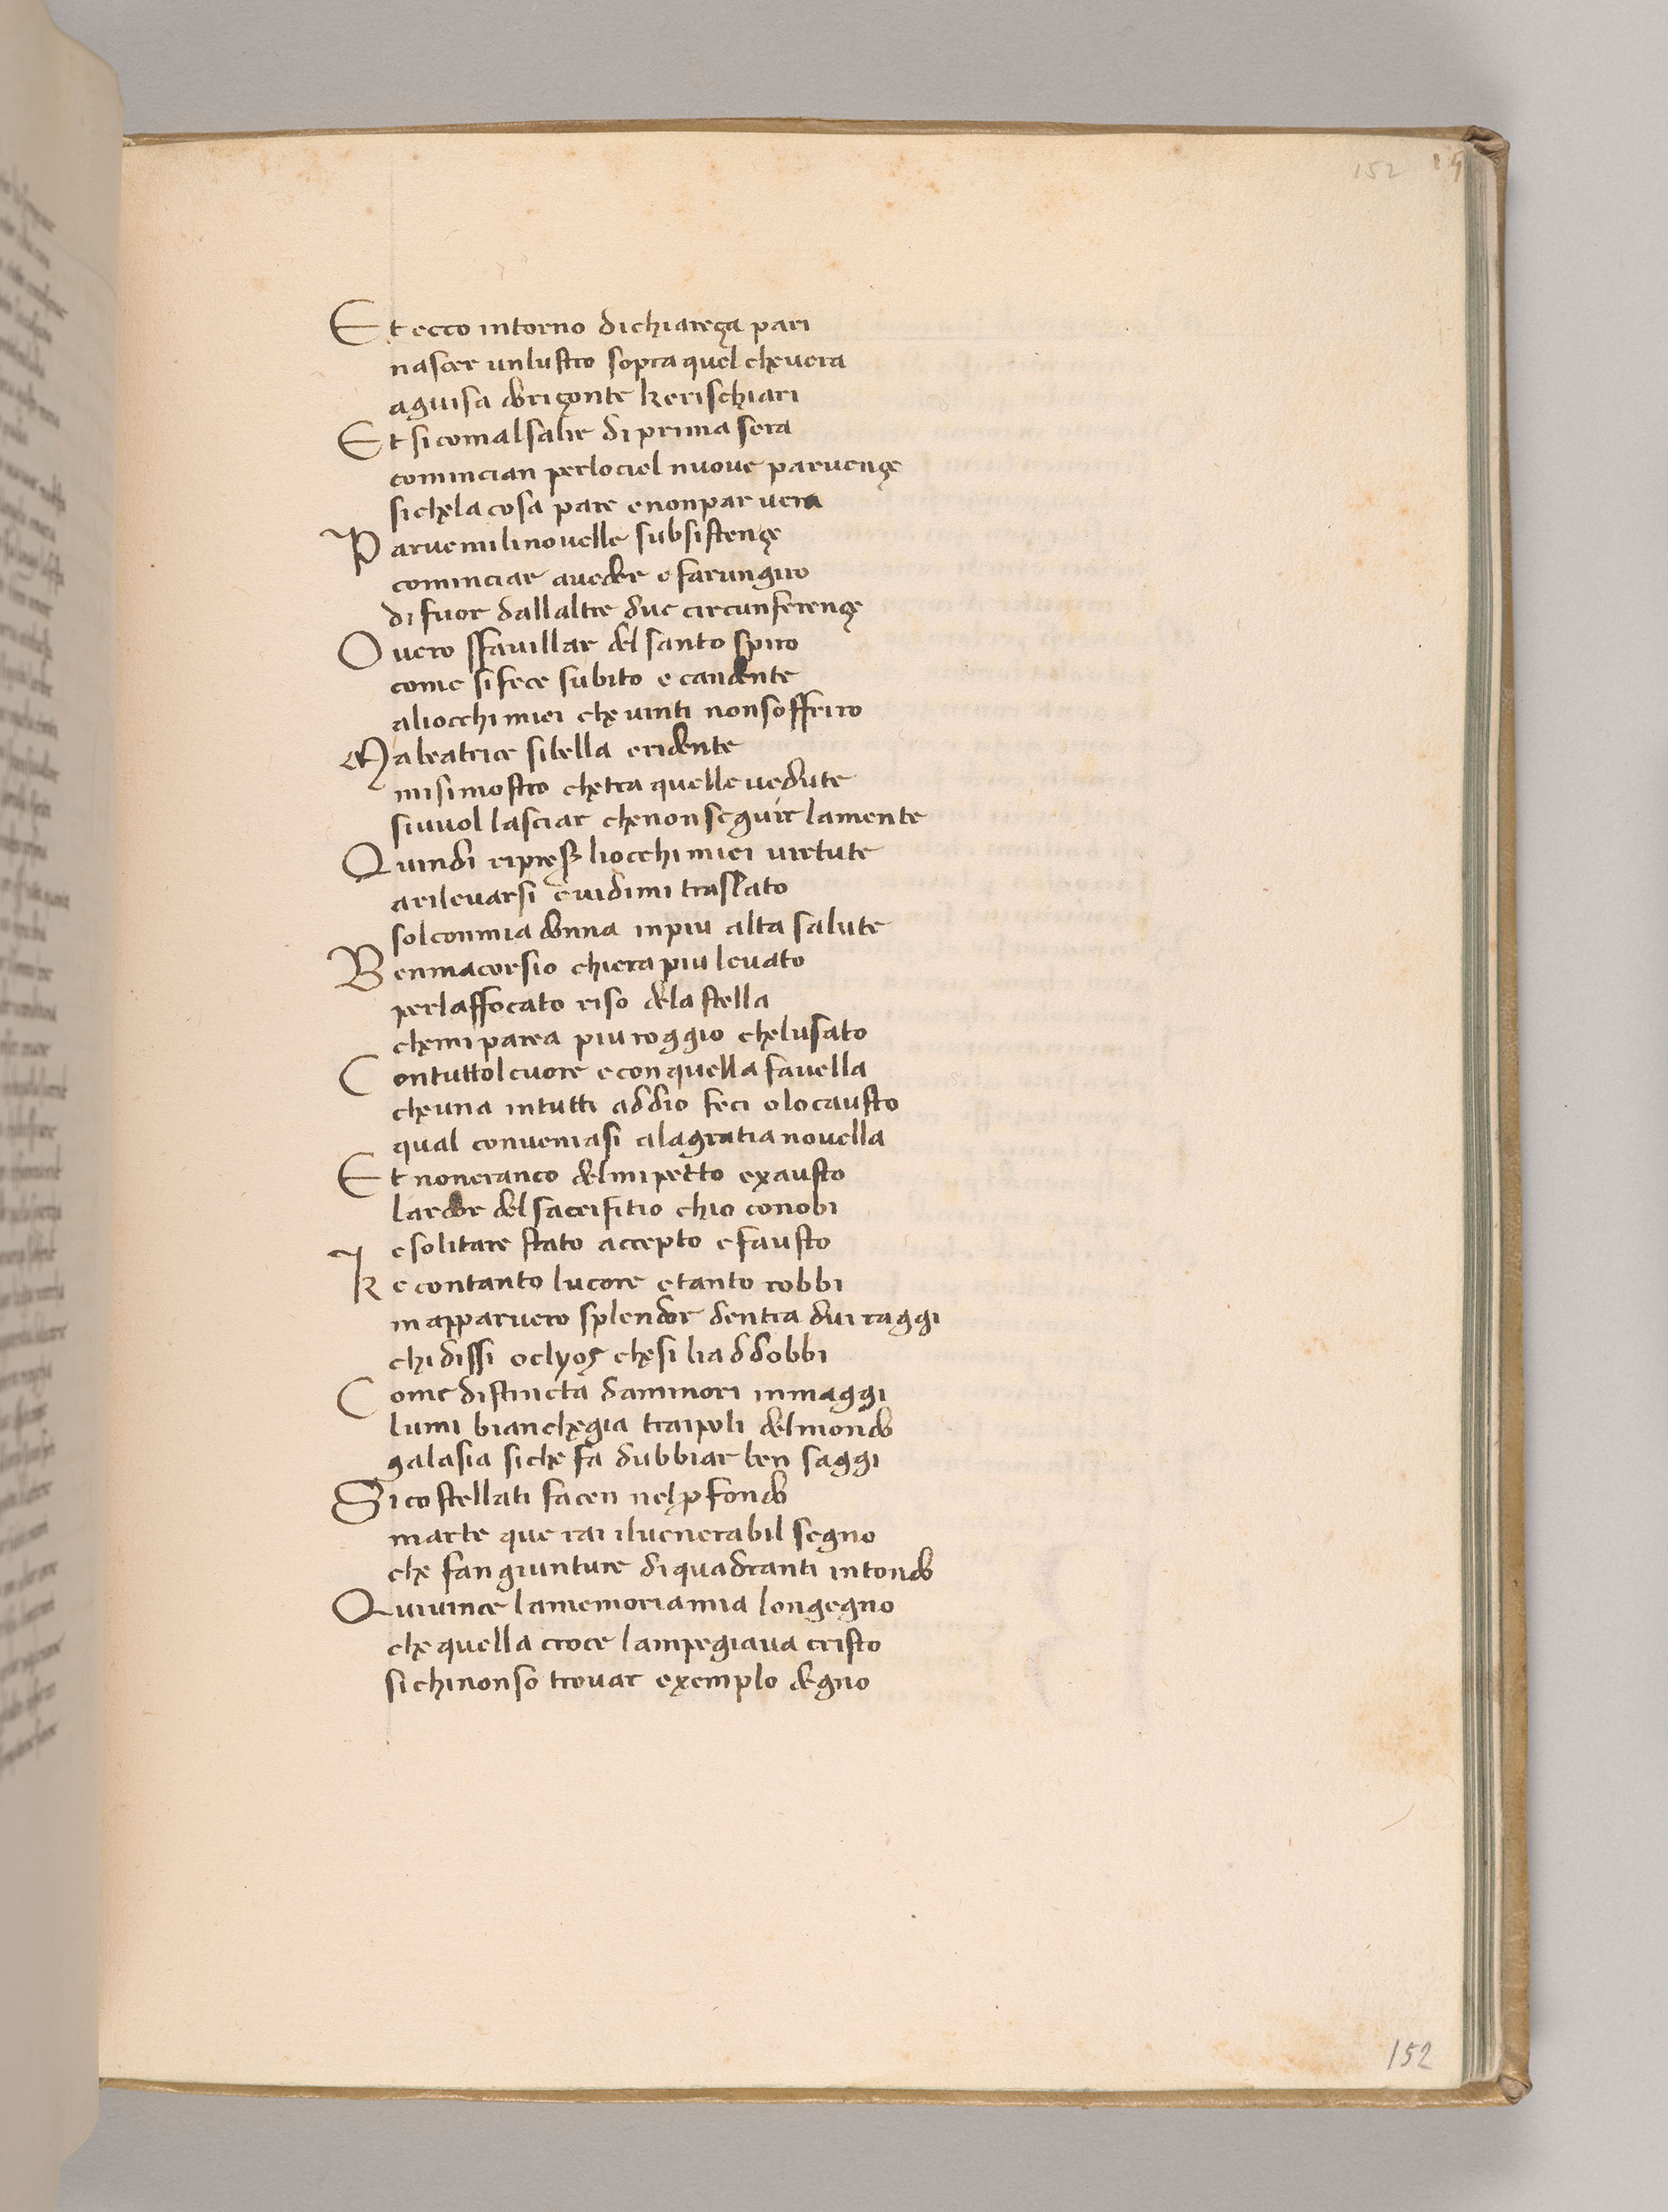 152
Et ecco intorno dichiareça pari
nascer unlustro sopra quel chevera
aguisa doriçonte kerischiari
Et sicomalsalir di prima sera
comincian perlociel nuove parvençe
sichelacosa pare enonpar vera
Parvemilinovelle subsistençe
cominciar aveder e farungiro
di fuor dallaltre due circunferençe
Overo sfavillar del santo spiro
come sifece subito e candente
aliocchi miei che vinti nonsoffriro
Mabeatrice sibella eridente
misimostro chetra quelle vedute
sivuol lasciar chenonseguir lamente
Quindi ripreser liocchi miei virtute
arilevarsi evidimi traslato
solconmia donna inpiu alta salute
Benmacorsio chiera piu levato
perlaffocato riso dela stella
chemi parea piu roggio chelusato
Contuttolcuore econquella favella
cheuna intutti addio feci olocausto
qual conveniasi alagratia novella
Et noneranco delmi petto exausto
lardor del sacrifitio chio conobi
esolitare stato accepto e fausto
Ke contanto lucore etanto robbi
mapparvero splendor dentra dui raggi
chi dissi oelyos chesi liaddobbi
Come distincta daminori inmaggi
lumi bianchegia traipoli delmondo
galasia siche fa dubbiar ben saggi
Si costellati facen nelꝓfondo
marte que rai ilvenerabil segno
che fan giunture diquadranti intondo
Quivince lamemoriamia longegno
che quella croce lampegiava cristo
sichinonso trovar exemplo degno
152